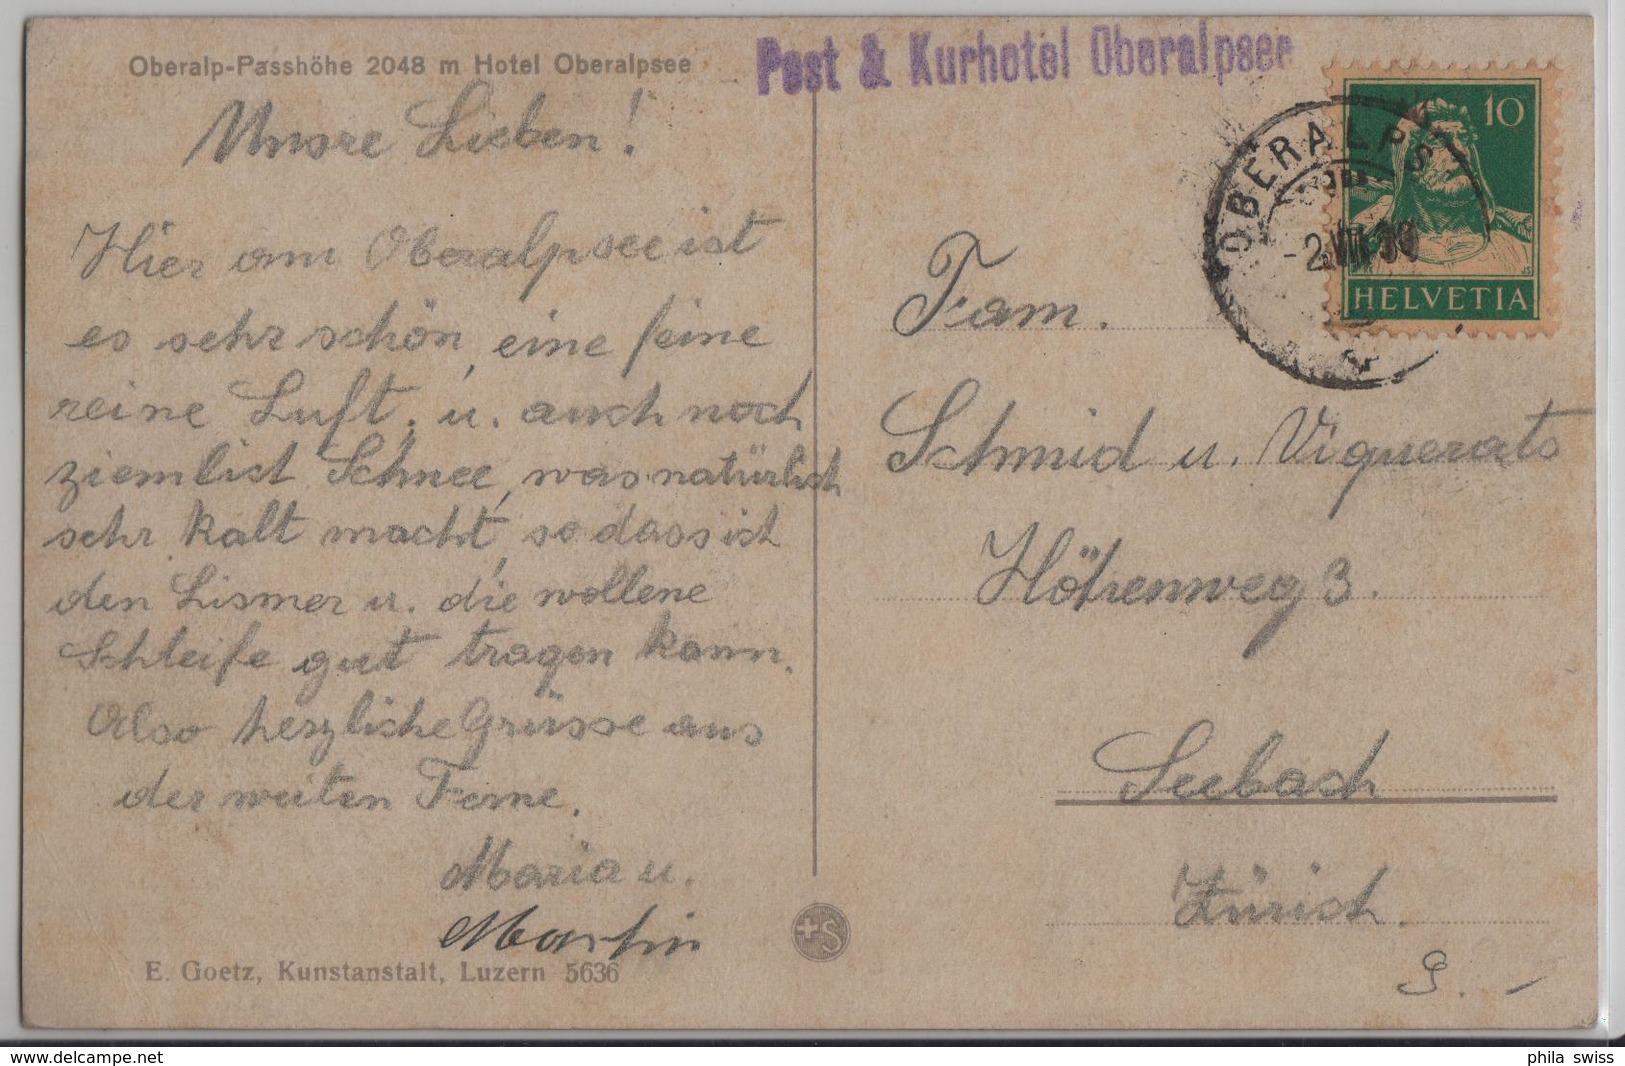 Oberalp-Passhöhe 2048 m Hotel Oberalpsee
Post & Kurhotel Oberalpsee
Unsre Lieben!
Hier am Oberalpsee ist
es sehr schön, eine feine
reine Luft. u. auch noch
ziemlich Schnee, was natürlich
sehr kalt macht, so dass ich
den Lismer u. die wollene
Schleife gut tragen kann.
Also herzliche Grüsse aus
der weiten Ferne.
Maria u.
Martin
E. Goetz, Kunstanstalt, Luzern 5636
+S
10
HELVETIA
OBERALPS
-2.VII.30
Fam.
Schmid u. Viquerats
Höhenweg 3.
Seebach
Zürich.
9. -
www.delcampe.net
phila swiss